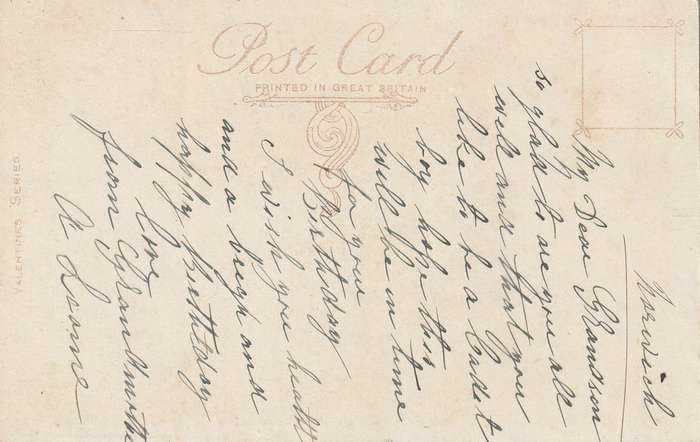 Post Card
PRINTED IN GREAT BRITAIN
VALENTINES SERIES
Norwich
My Dear Grandson
so glad to see you all
well and that you
like to be a Cadet
boy hope this
will be in time
for your
Birthday
I wish you health
and a bright and
happy birthday
love
from Grandmother
A Loome